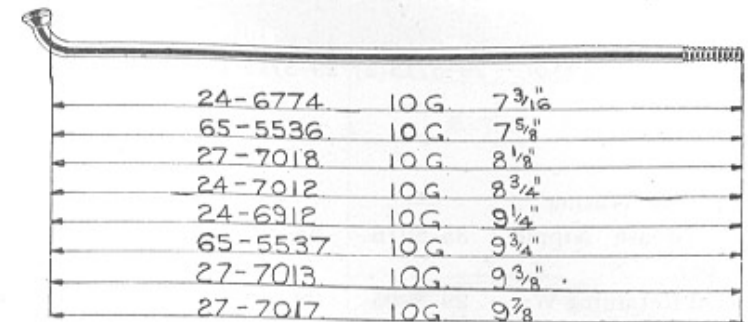 24-6774. 10G. 7 3/16"
65-5536. 10G. 7 5/8"
27-7018. 10G. 8 1/8"
24-7012. 10G. 8 3/4"
24-6912. 10G. 9 1/4"
65-5537. 10G. 9 3/4"
27-7013. 10G. 9 3/8"
27-7017. 10G. 9 7/8